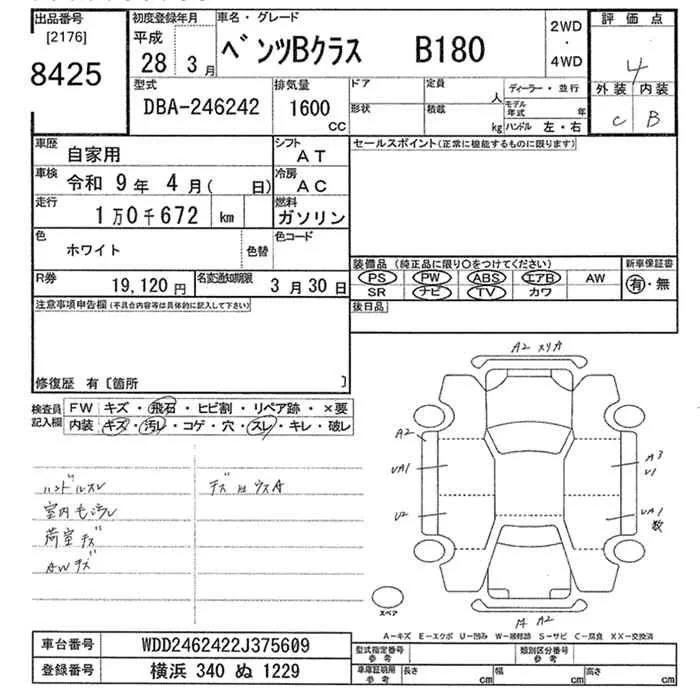 出品番号
[2176]
8425
初度登録年月
平成
28 3月
車名・グレード
ベンツBクラス B180
2WD
・
4WD
評価点
4
外装 内装
C B
型式
DBA-246242
排気量
1600
CC
ドア
形状
定員
人
積載
kg
ディーラー・並行
モデル年式 年
ハンドル 左・右
車歴
自家用
シフト
AT
車検
令和 9年 4月( 日)
冷房
AC
走行
1万0千672 km
燃料
ガソリン
色
ホワイト
色替
色コード
セールスポイント(正常に機能するものに限ります)
装備品 (純正品に限り○をつけてください)
新車保証書
PS PW ABS エアB AW
SR ナビ TV カワ
有・無
R券
19,120円
名変通知期限
3月30日
後日品
注意事項申告欄(不具合内容等は具体的に記入して下さい)
修復歴 有〔箇所 〕
検査員記入欄
FW キズ・飛石・ヒビ割・リペア跡・×要
内装 キズ・汚レ・コゲ・穴・スレ・キレ・破レ
ハンドルスレ
室内モヨゴレ
荷室キズ
AWキズ
A2 スリキ
A2
UA1
U2
A3
U1
UA1
数
A2
スペア
A−キズ E−エクボ U−凹み W−補修跡 S−サビ C−腐食 XX−交換済
車台番号
WDD2462422J375609
登録番号
横浜 340 ぬ 1229
型式指定番号
参考
類別区分番号
参考
車庫証明用
参考
長さ cm
幅 cm
高さ cm